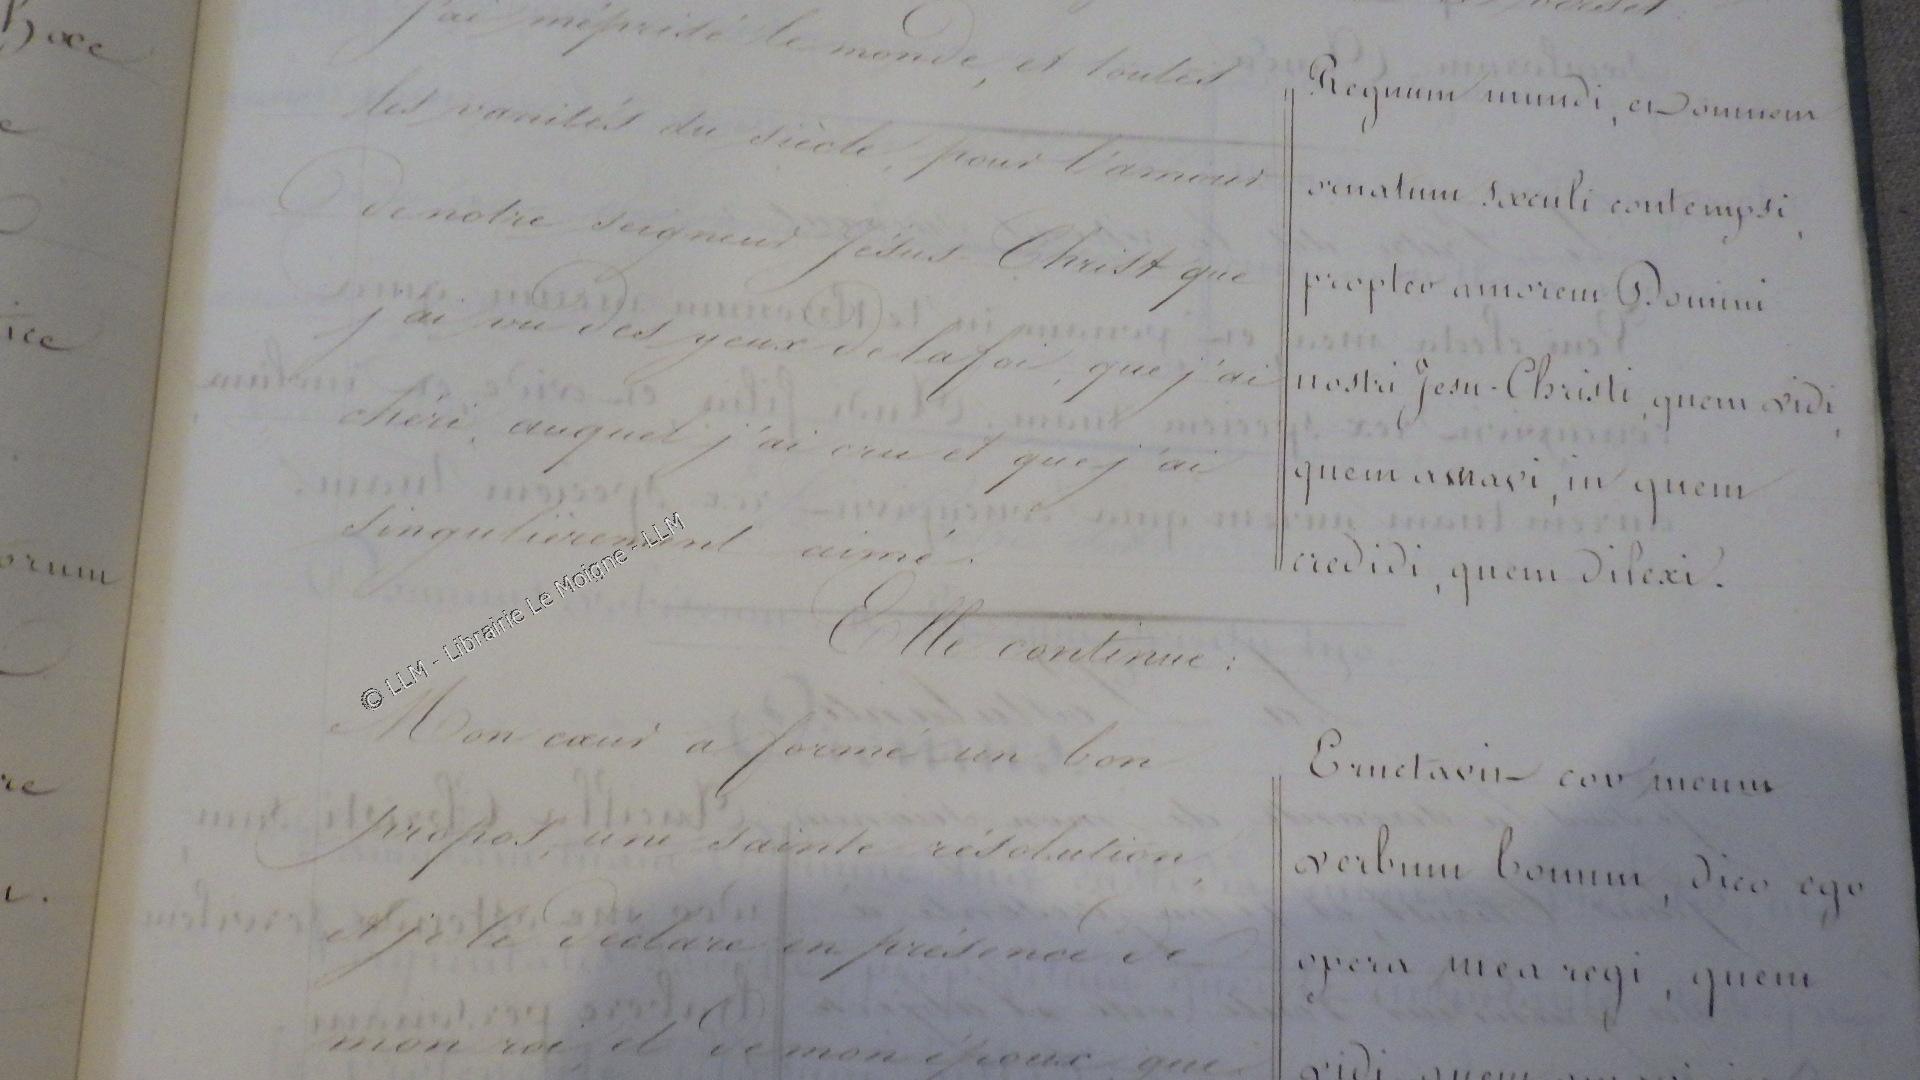 hoce
e
ice
orum
re
verset.
J'ai méprisé le monde, et toutes
les vanités du siècle, pour l'amour
de notre seigneur Jésus Christ que
j'ai vu des yeux de la foi, que j'ai
chéri, auquel j'ai cru et que j'ai
singulièrement aimé.
Regnum mundi, et omnem
ornatum sæculi contempsi,
propter amorem Domini
nostri Jesu-Christi, quem vidi,
quem amavi, in quem
credidi, quem dilexi.
Elle continue :
Mon cœur a formé un bon
propos, une sainte résolution,
et je le déclare en présence de
mon roi et de mon époux, que
Eructavit cor meum
verbum bonum, dico ego
opera mea regi, quem
vidi, quem
© LLM - Librairie Le Moigne - LLM